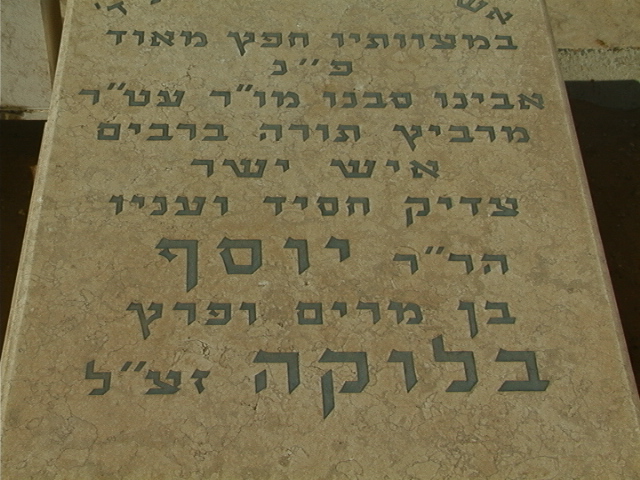 במצוותיו חפץ מאוד
פ"נ
אבינו סבנו מו"ר עט"ר
מרביץ תורה ברבים
איש ישר
צדיק חסיד ועניו
הר"ר יוסף
בן מרים ופרץ
בלוקה זצ"ל